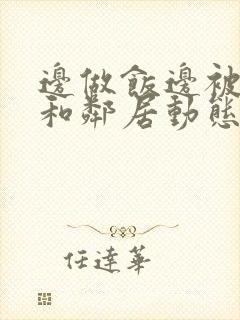 邊做飯邊被
和鄰居動態
任達華